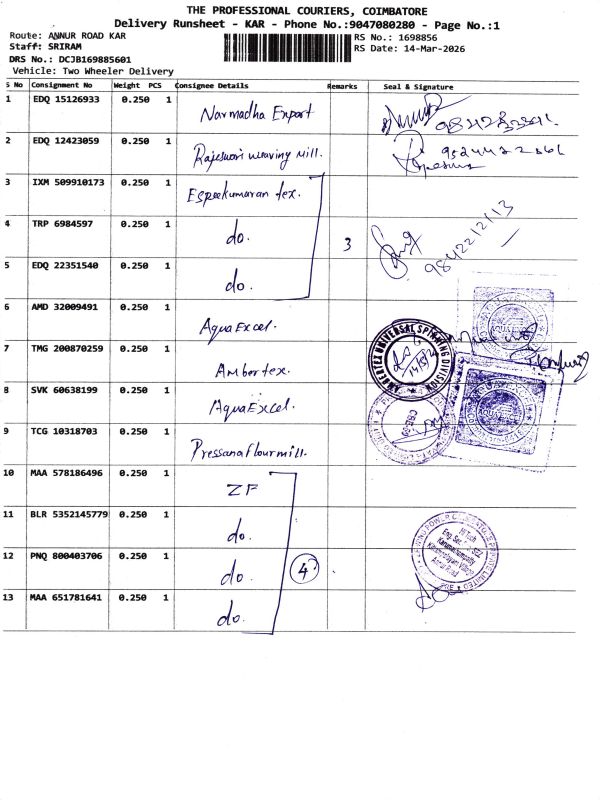 THE PROFESSIONAL COURIERS, COIMBATORE
Delivery Runsheet - KAR - Phone No.:9047080280 - Page No.:1
Route: ANNUR ROAD KAR
RS No.: 1698856
Staff: SRIRAM
RS Date: 14-Mar-2026
DRS No.: DCJB169885601
Vehicle: Two Wheeler Delivery
S No Consignment No Weight PCS Consignee Details Remarks Seal & Signature
1 EDQ 15126933 0.250 1 Narmadha Export
2 EDQ 12423059 0.250 1 Rajeswari weaving mill.
3 IXM 509910173 0.250 1 Espeekumaran tex.
4 TRP 6984597 0.250 1 do. 3 9842212113
5 EDQ 22351540 0.250 1 do.
6 AMD 32009491 0.250 1 AquaExcel.
7 TMG 200870259 0.250 1 Ambertex.
AMBERTEX UNIVERSAL SPINNING DIVISION
8 SVK 60638199 0.250 1 AquaExcel.
9 TCG 10318703 0.250 1 Pressanaflourmill.
10 MAA 578186496 0.250 1 ZF
11 BLR 5352145779 0.250 1 do.
12 PNQ 800403706 0.250 1 do. 4
13 MAA 651781641 0.250 1 do.